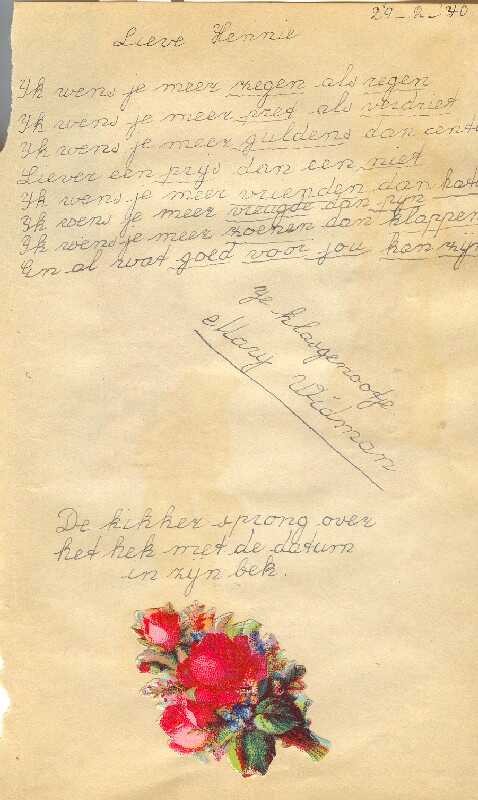 29-2-'40
Lieve Hennie
Ik wens je meer zegen als regen
Ik wens je meer pret als verdriet
Ik wens je meer guldens dan cente
Liever een prijs dan een niet
Ik wens je meer vrienden dan hate
Ik wens je meer vreugde dan pijn
Ik wens je meer zoenen dan klappen
En al wat goed voor jou kan zijn
Je klasgenootje
Mary Widman
De kikker sprong over
het hek met de datum
in zijn bek.